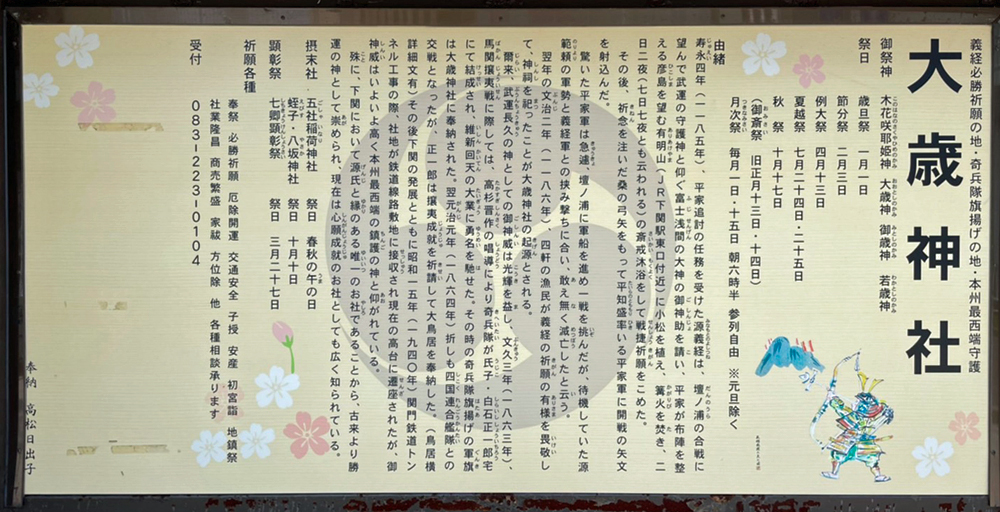 義経必勝祈願の地・奇兵隊旗揚げの地・本州最西端守護
大歳神社
御祭神 木花咲耶姫神 大歳神 御歳神 若歳神
祭日
歳旦祭 一月一日
節分祭 二月三日
例大祭 四月十三日
夏越祭 七月二十四日・二十五日
秋祭 十月十七日
御斎祭 旧正月十三日・十四日
月次祭 毎月一日・十五日 朝六時半 参列自由 ※元旦除く
由緒
寿永四年(一一八五年)、平家追討の任務を受けた源義経は、壇ノ浦の合戦に
望んで武運の守護神と仰ぐ富士浅間の大神の御神助を請い、平家が布陣を整
える彦島を望む有明山(JR下関駅東口付近)に小松を植え、篝火を焚き、二
日二夜(七日七夜とも云われる)の斎戒沐浴をして戦捷祈願をこめた。
その後、祈念を注いだ桑の弓矢をもって平知盛率いる平家軍に開戦の矢文
を射込んだ。
驚いた平家軍は急遽、壇ノ浦に軍船を進め一戦を挑んだが、待機していた源
範頼の軍勢と義経軍との挟み撃ちに合い、敢え無く滅亡したと云う。
翌年の文治二年(一一八六年)、四軒の漁民が義経の祈願の有様を畏敬し
て、神祠を祀ったことが大歳神社の起源とされる。
爾来、武運長久の神としての御神威は光輝を益し、文久三年(一八六三年)、
馬関攘夷戦に際しては、高杉晋作の唱導により奇兵隊が氏子・白石正一郎宅
にて結成され、維新回天の大業に勇名を馳せた。その時の奇兵隊旗揚げの軍旗
は大歳神社に奉納された。翌元治元年(一八六四年)折しも四国連合艦隊との
交戦となったが、正一郎は攘夷成就を祈請して大鳥居を奉納した。(鳥居横
詳細文有)その後下関の発展とともに昭和一五年(一九四〇年)関門鉄道トン
ネル工事の際、社地が鉄道線路敷地に接収され現在の高台に遷座されたが、御
神威はいよいよ高く本州最西端の鎮護の神と仰がれている。
殊に、下関において源氏と縁のある唯一のお社であることから、古来より勝
運の神として崇められ、現在は心願成就のお社としても広く知られている。
摂末社 五社稲荷神社 祭日 春秋の午の日
蛭子・八坂神社 祭日 十月十日
顕彰祭 七卿顕彰祭 祭日 三月二十七日
祈願各種
奉祭 必勝祈願 厄除開運 交通安全 子授 安産 初宮詣 地鎮祭
社業隆昌 商売繁盛 家祓 方位除 他 各種相談承ります
受付 083-223-0104
奉納 高松日出子